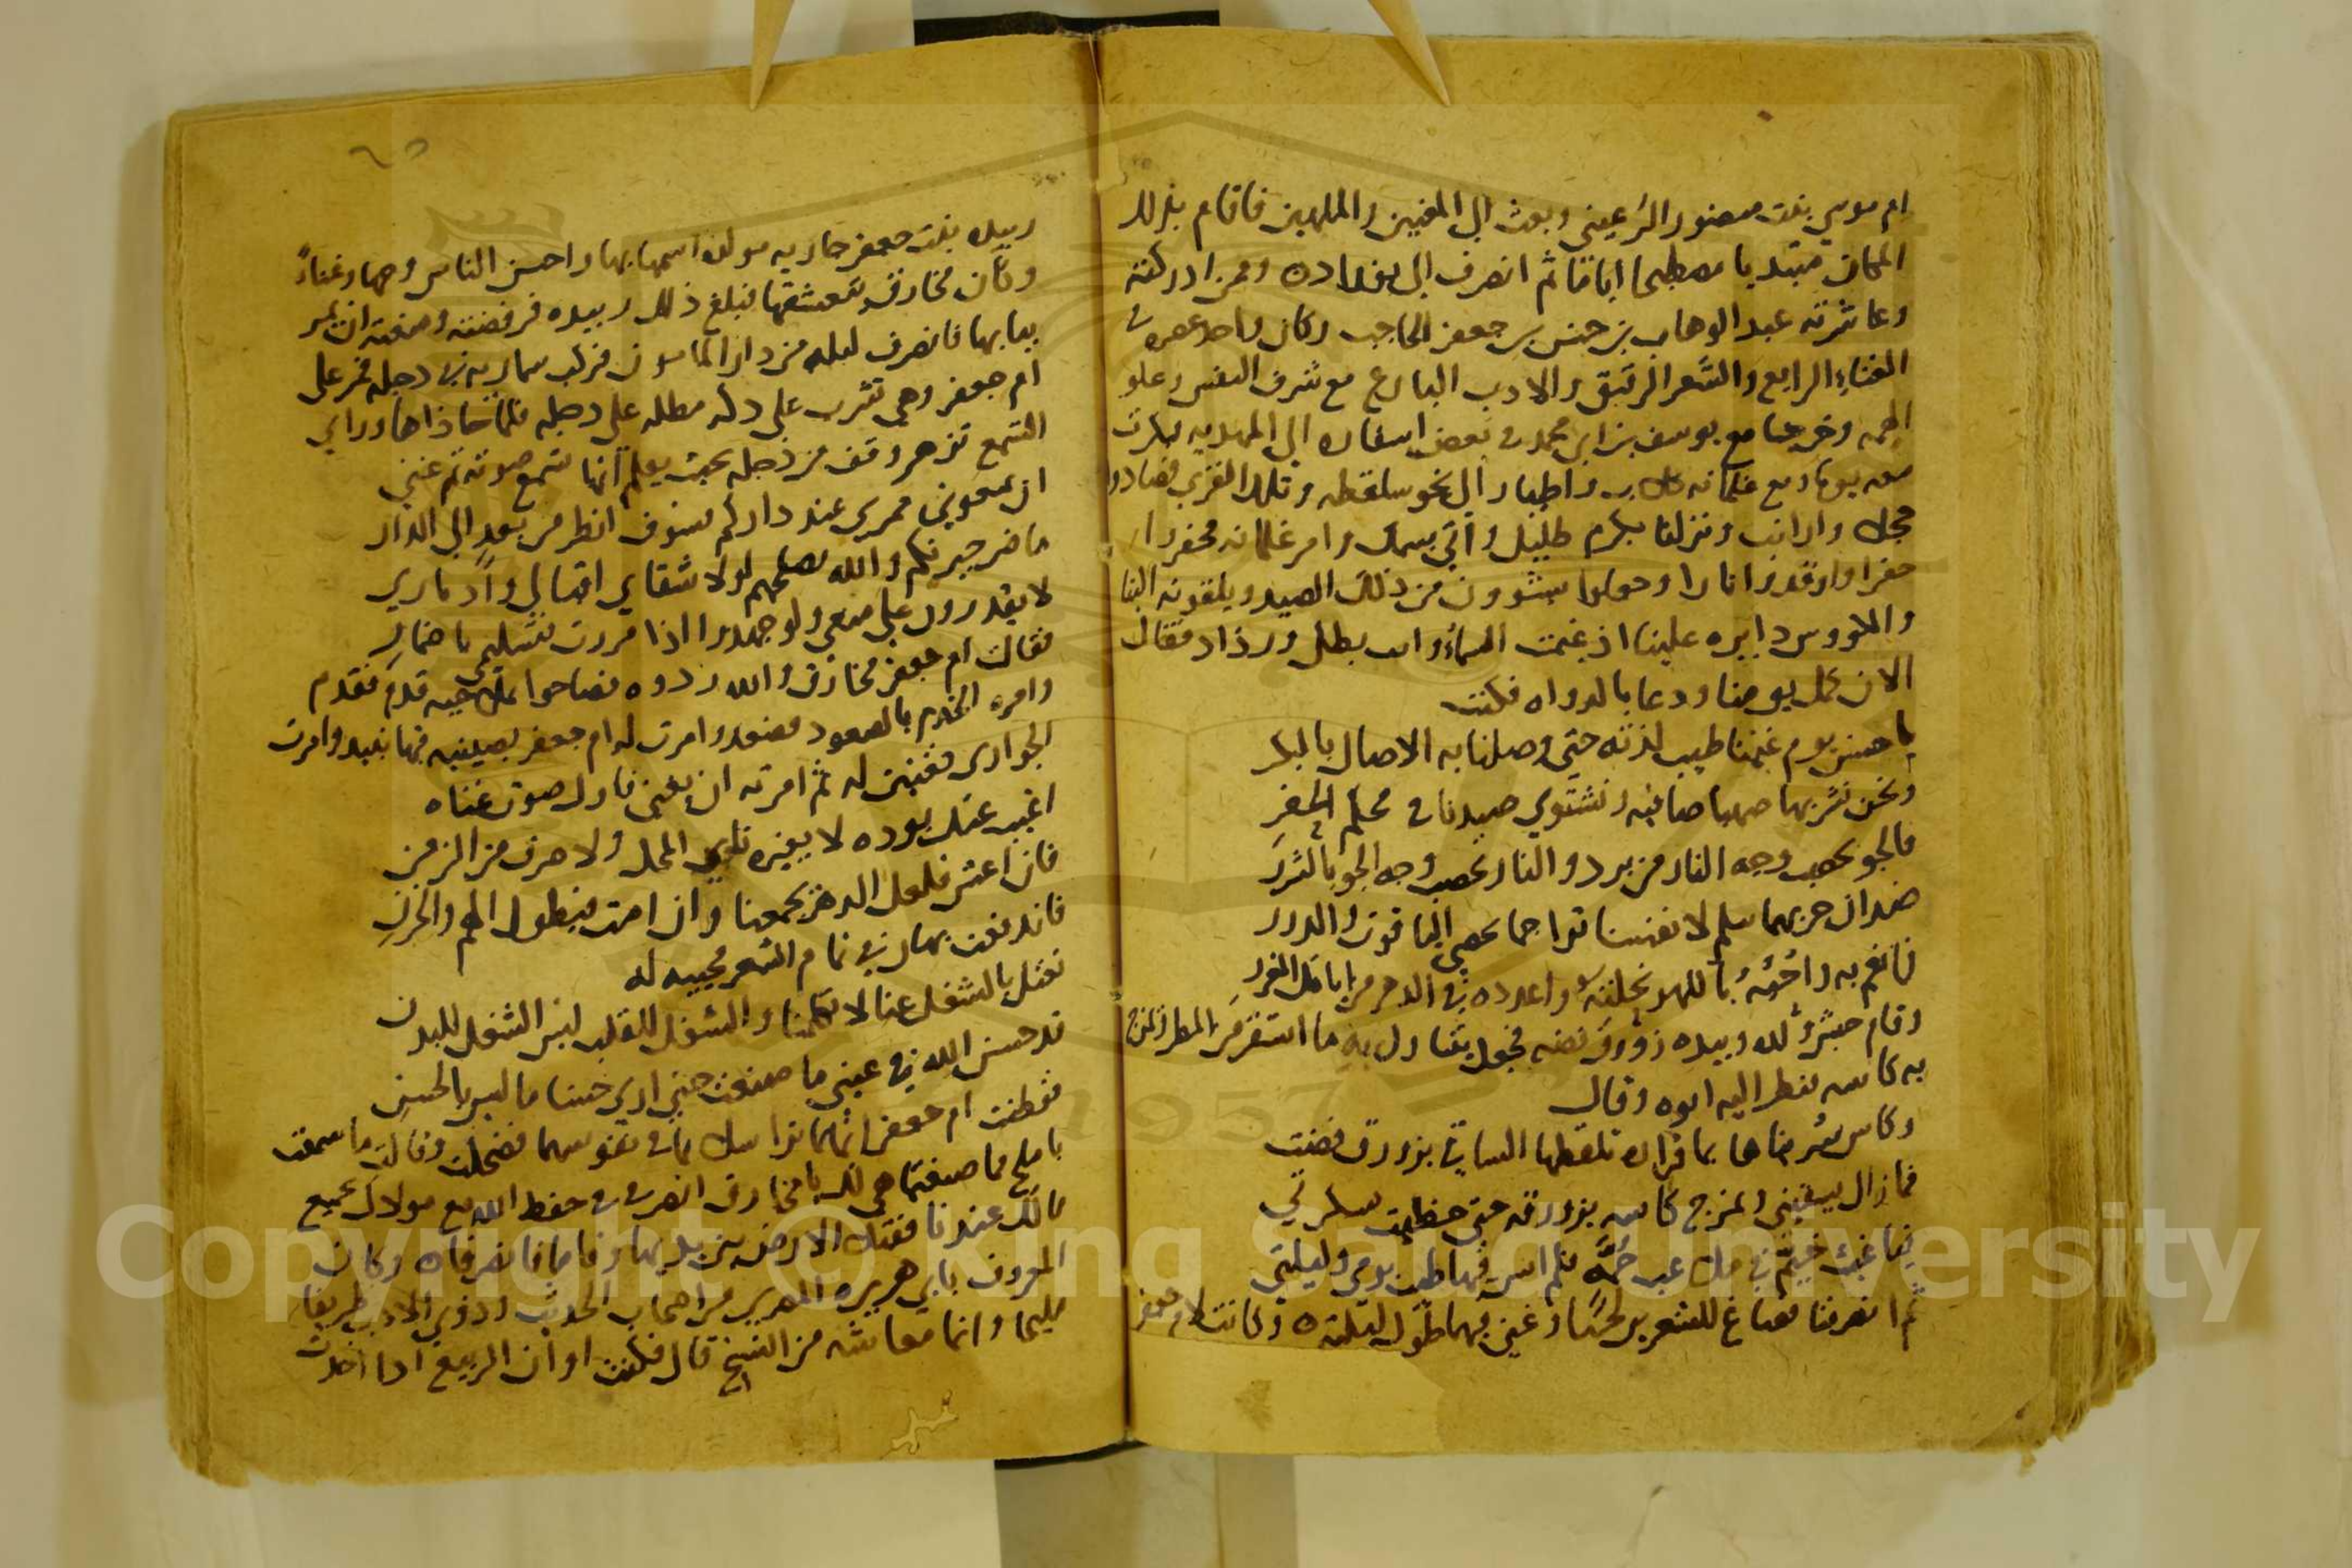 ام موسى بنت منصور الرعيني وبعث الى المغنيين والملهين فاقام بذلك
المكان مبتديا مصطبحا اياما ثم انصرف الى بغداده وممن ادركته
وعاشرته عبد الوهاب بن حسين بن جعفر الحاجب وكان واحد عصره في
الغناء الرايع والشعر الرقيق والادب البارع مع شرف النفس وعلو
الهمه وخرجنا مع يوسف بن ابي محمد في بعض اسفاره الى المهديه
معه يوما ومع غلمانه واطيار الى نحو سلقطه وتلك القرى فصادوا
حجلا وارانب ونزلنا واتي بسمك وامر غلمانه فحفروا
حفرا واوقدوا نارا وجعلوا يشوون من ذلك الصيد ويلقونه الينا
والكووس دايره علينا اذ غيمت السماء واتت بطل ورذاذ فقال
الان كمل يومنا ودعا بالدواه فكتب
يا حسن يوم غيمنا طيب لذته حتى وصلنا به الاصال بالبكر
ونحن نشربها صهبا صافيه ونشتوي صيدنا في محكم الحفر
فالجو يحصب وجه النار من برد والنار تحصب وجه الجو بالشرر
ضدان حربهما سلم لانفسنا تراجما بحصى الياقوت والدرر
فانعم به واحبه باللهو نجلته واعدده في الدهر من ايامك الغرر
وقام حبشي له وبيده زورق فضه فجعل يتناول به ما استنقع من المطر ويمزج
به كاسه فنظر اليه ابوه وقال
وكاس شربناها بما قراره تلقطها الساقي بزورق فضت
فما زال يسقيني ويمزج كاسه بزورقه حتى حظيت بسكرتي
فيا غيث خيم في ملك عبد حمه فلم انس فيها طيب يومي وليلتي
ثم انصرفنا فصاغ للشعرين لحنا وغنى بهما طول ليلته وكانت لام جعفر
زبيده بنت جعفر جاريه مولده اسمها بهار احسن الناس وجها وغناء
وكان مخارق يتعشقها فبلغ ذلك زبيده فرفضته ومنعته ان يمر
ببابها فانصرف ليله من دار المامون فركب سماريه في دجله فمر على
ام جعفر وهي تشرب على دكه مطله على دجله فلما حاذاها وراى
الشمع تزهر وقف من دجله بحيث يعلم انها تسمع صوته ثم غنى
ان تمنعوني ممري عند داركم فسوف انظر من بعد الى الدار
ما ضر جيرانكم والله يصلحهم لولا شقاي اقبالي وادباري
لا يقدرون على منعي ولو جهدوا اذا مررت بتسليمي باضمار
فقالت ام جعفر مخارق والله ردوه فصاحوا بملاحيه قدم فقدم
وامره الخدم بالصعود فصعد وامرت له ام جعفر بصينيه فيها نبيد وامرت
الجواري فغنين له ثم امرته ان يغني فاول صوت غناه
اغيب عنك بود ه لا يغيره ناي المحل ولا صرف من الزمن
فان اعش فلعل الدهر يجمعنا وان امت فبطول الهم والحزن
فاندفعت بهار في تمام الشعر مجيبه له
تعتل بالشغل عنا لا تكلمنا والشغل للقلب ليس الشغل للبدن
قد حسن الله في عيني ما صنعت حتى ارى حسنا ما ليس بالحسن
ففطنت ام جعفر انهما تراسلا بما في نفوسهما فضحكت وقالت ما سمعت
باملح مما صنعتما هي لك يا مخارق انصرف في حفظ الله مع مولاتك بجميع
مالك عندنا فقبل الارض بين يديها وقاما فانصرفا ه وكان
المعروف بابي هريره المصري من اصحاب الحديث وذوي الادب ظريفا
مليحا وانما معاشه من النسخ قال فكنت اوان الربيع اذا اخذت